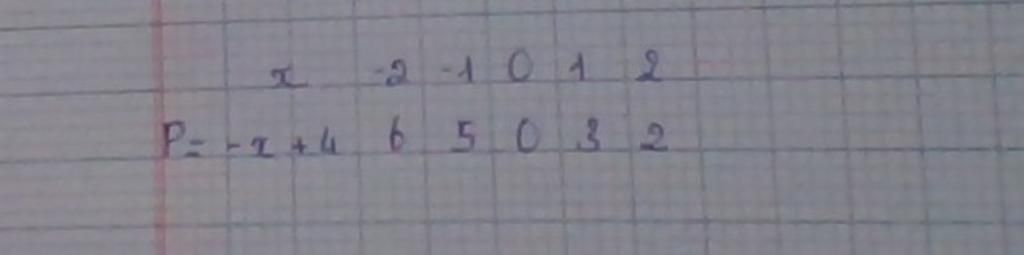 x -2 -1 0 1 2
P = -x + 4 6 5 0 3 2